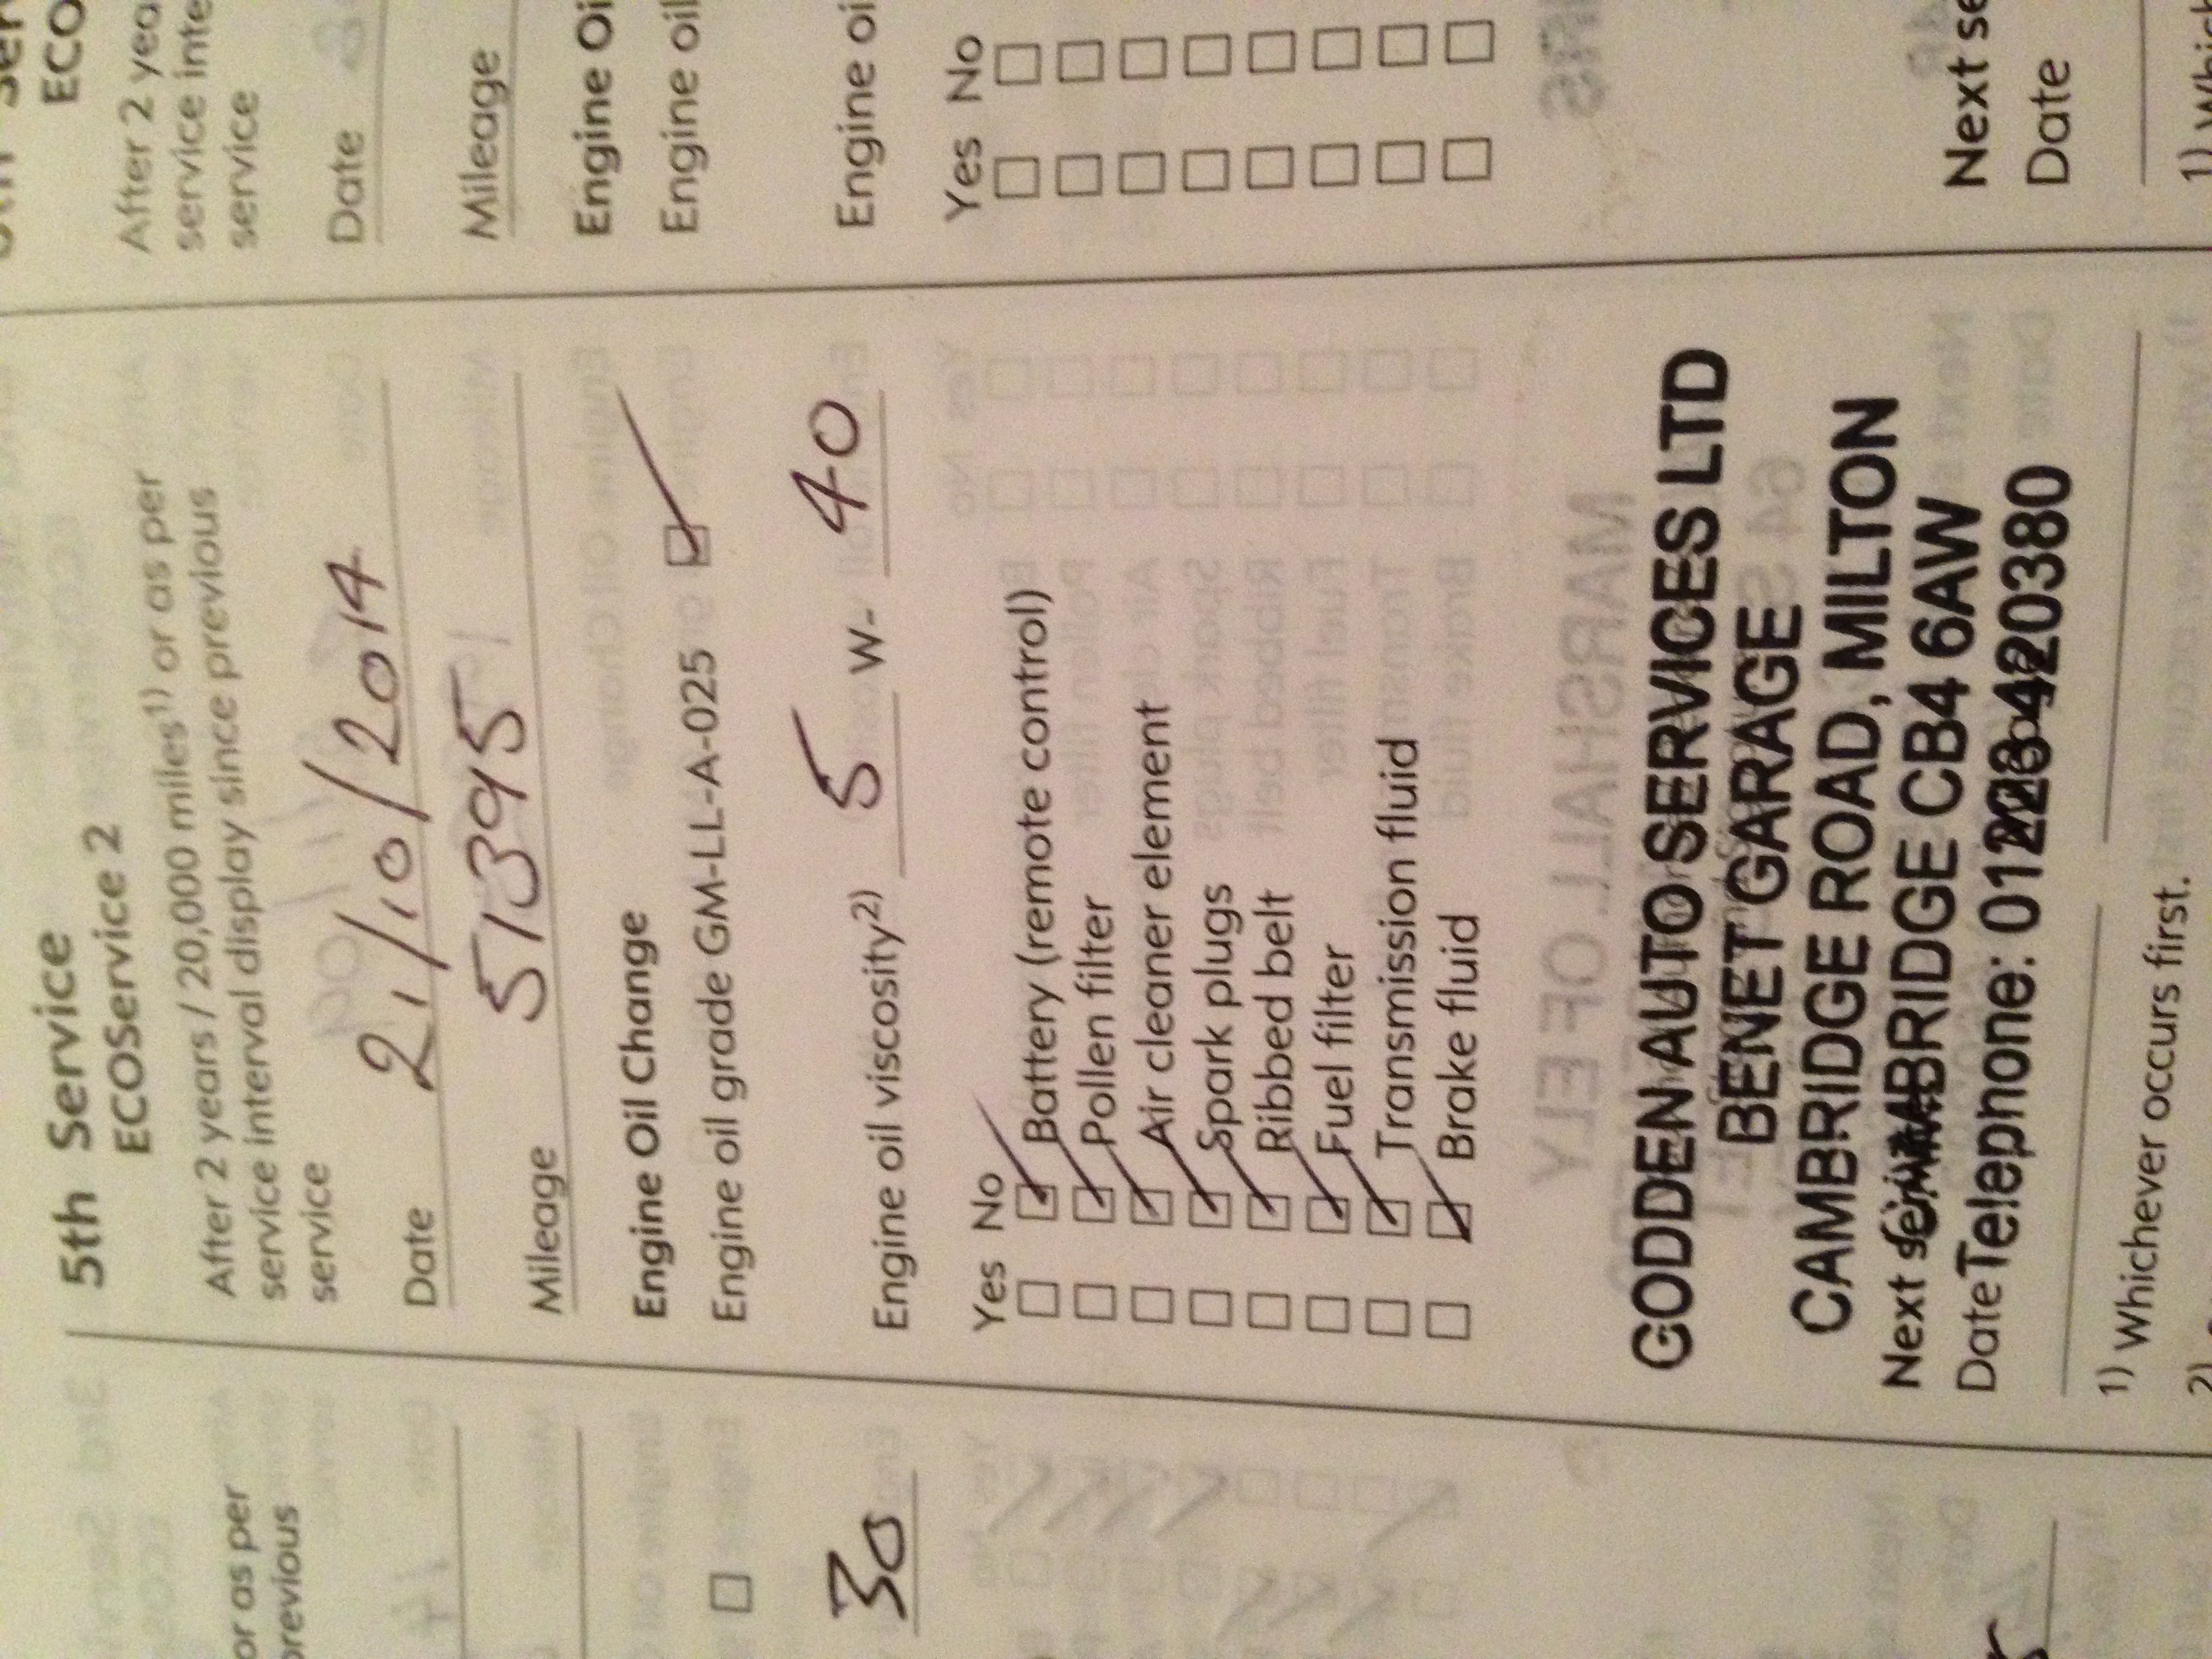 5th Service
ECOService 2
After 2 years / 20,000 miles1) or as per
service interval display since previous
service
Date 21/10/2014
Mileage 51395
Engine Oil Change
Engine oil grade GM-LL-A-025
Engine oil viscosity2) 5 W- 40
Yes No
Battery (remote control)
Pollen filter
Air cleaner element
Spark plugs
Ribbed belt
Fuel filter
Transmission fluid
Brake fluid
GODDEN AUTO SERVICES LTD
BENET GARAGE
CAMBRIDGE ROAD, MILTON
CAMBRIDGE CB4 6AW
Telephone: 01223 420380
Next service
Date
1) Whichever occurs first.
2)
or as per
previous
30
ECO
After 2
service
service
Date
Mileage
Engine
Engine oil
Engine
Yes No
Next
Date
1)